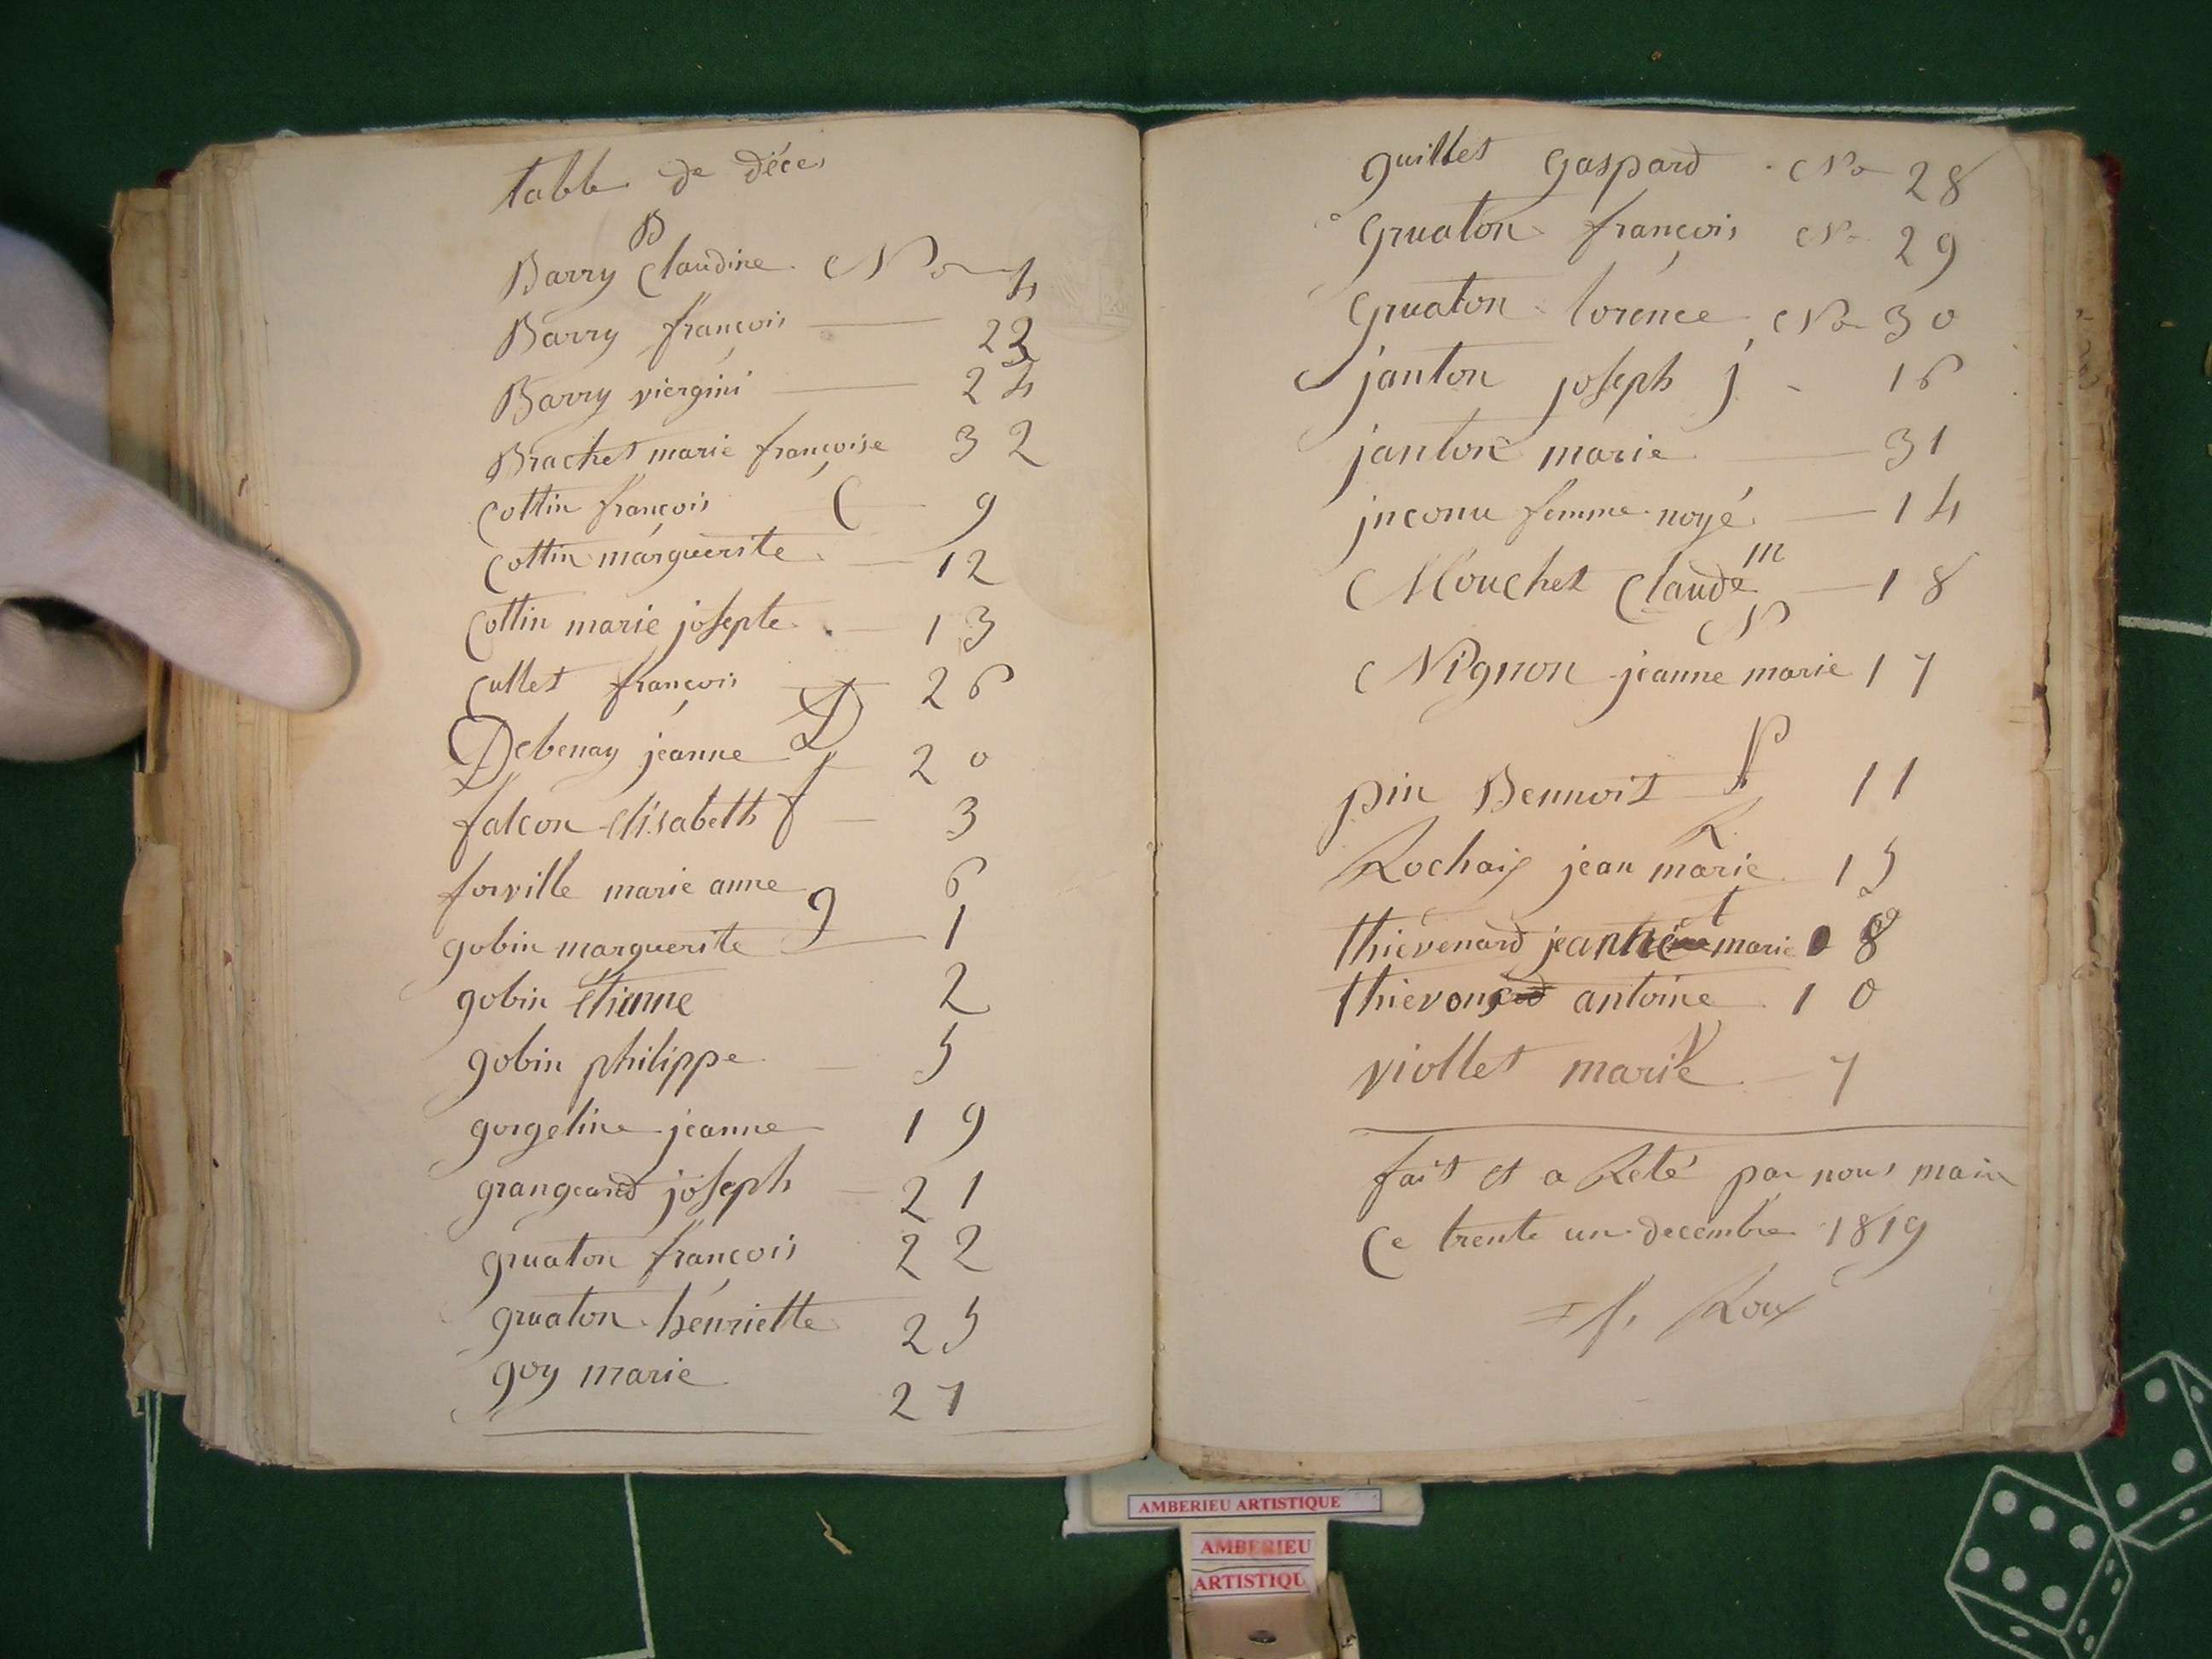 table de déces
B
Barry Claudine No 4
Barry françois 23
Barry viergini 24
Brachet marie françoise 32
Cottin françois C 9
Cottin marguerite 12
Cottin marie josepte 13
Cullet françois 26
D
Debenay jeanne 20
falcon elisabeth f 3
forville marie anne 6
gobin marguerite g 1
gobin étienne 2
gobin philippe 5
gorgeline jeanne 19
grangeand joseph 21
gruaton françois 22
gruaton henriette 25
goy marie 27
guillet Gaspard No 28
Gruaton françois No 29
Gruaton lorence No 30
janton joseph j 16
janton marie 31
jnconu femme noyé 14
m
Mouchet Claude 18
N
Nignon jeanne marie 17
P
pin Bennoit 11
R
Rochaix jean marie 15
t
thievenard jeanne marie 8
thievon antoine 10
V
viollet marie 7
fait et a Reté par nous maire
Ce trente un decembre 1819
f. Roux
AMBERIEU ARTISTIQUE
AMBERIEU
ARTISTIQU